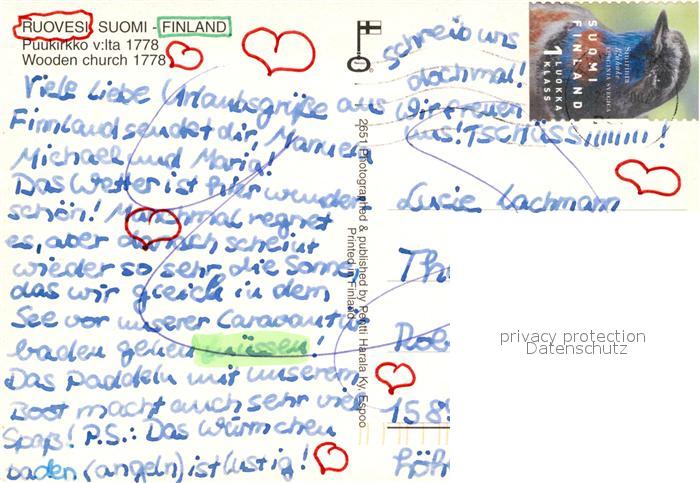 RUOVESI, SUOMI - FINLAND
Puukirkko v:lta 1778
Wooden church 1778
Viele liebe Urlaubsgrüße aus
Finnland sendet dir Manuel
Michael und Maria!
Das Wetter ist hier wunder
schön! Manchmal regnet
es, aber dennoch scheint
wieder so sehr die Sonne
das wir gleich in dem
See vor unserer Caravantür
baden gehen müssen.
Das Paddeln mit unserem
Boot macht auch sehr viel
Spaß! P.S.: Das Würmchen
baden (angeln) ist lustig!
2651 Photographed & published by Pentti Harala Ky. Espoo
Printed in Finland
schreib uns
dochmal!
Wir freuen
uns! TSCHÜSS!!!!!!!
SUOMI
FINLAND
1 LUOKKA
KLASS
Sinirinta
Blåhake
LUSCINIA SVECICA
Lucie Lachmann
Th
Rob
15.8
Höh
privacy protection
Datenschutz